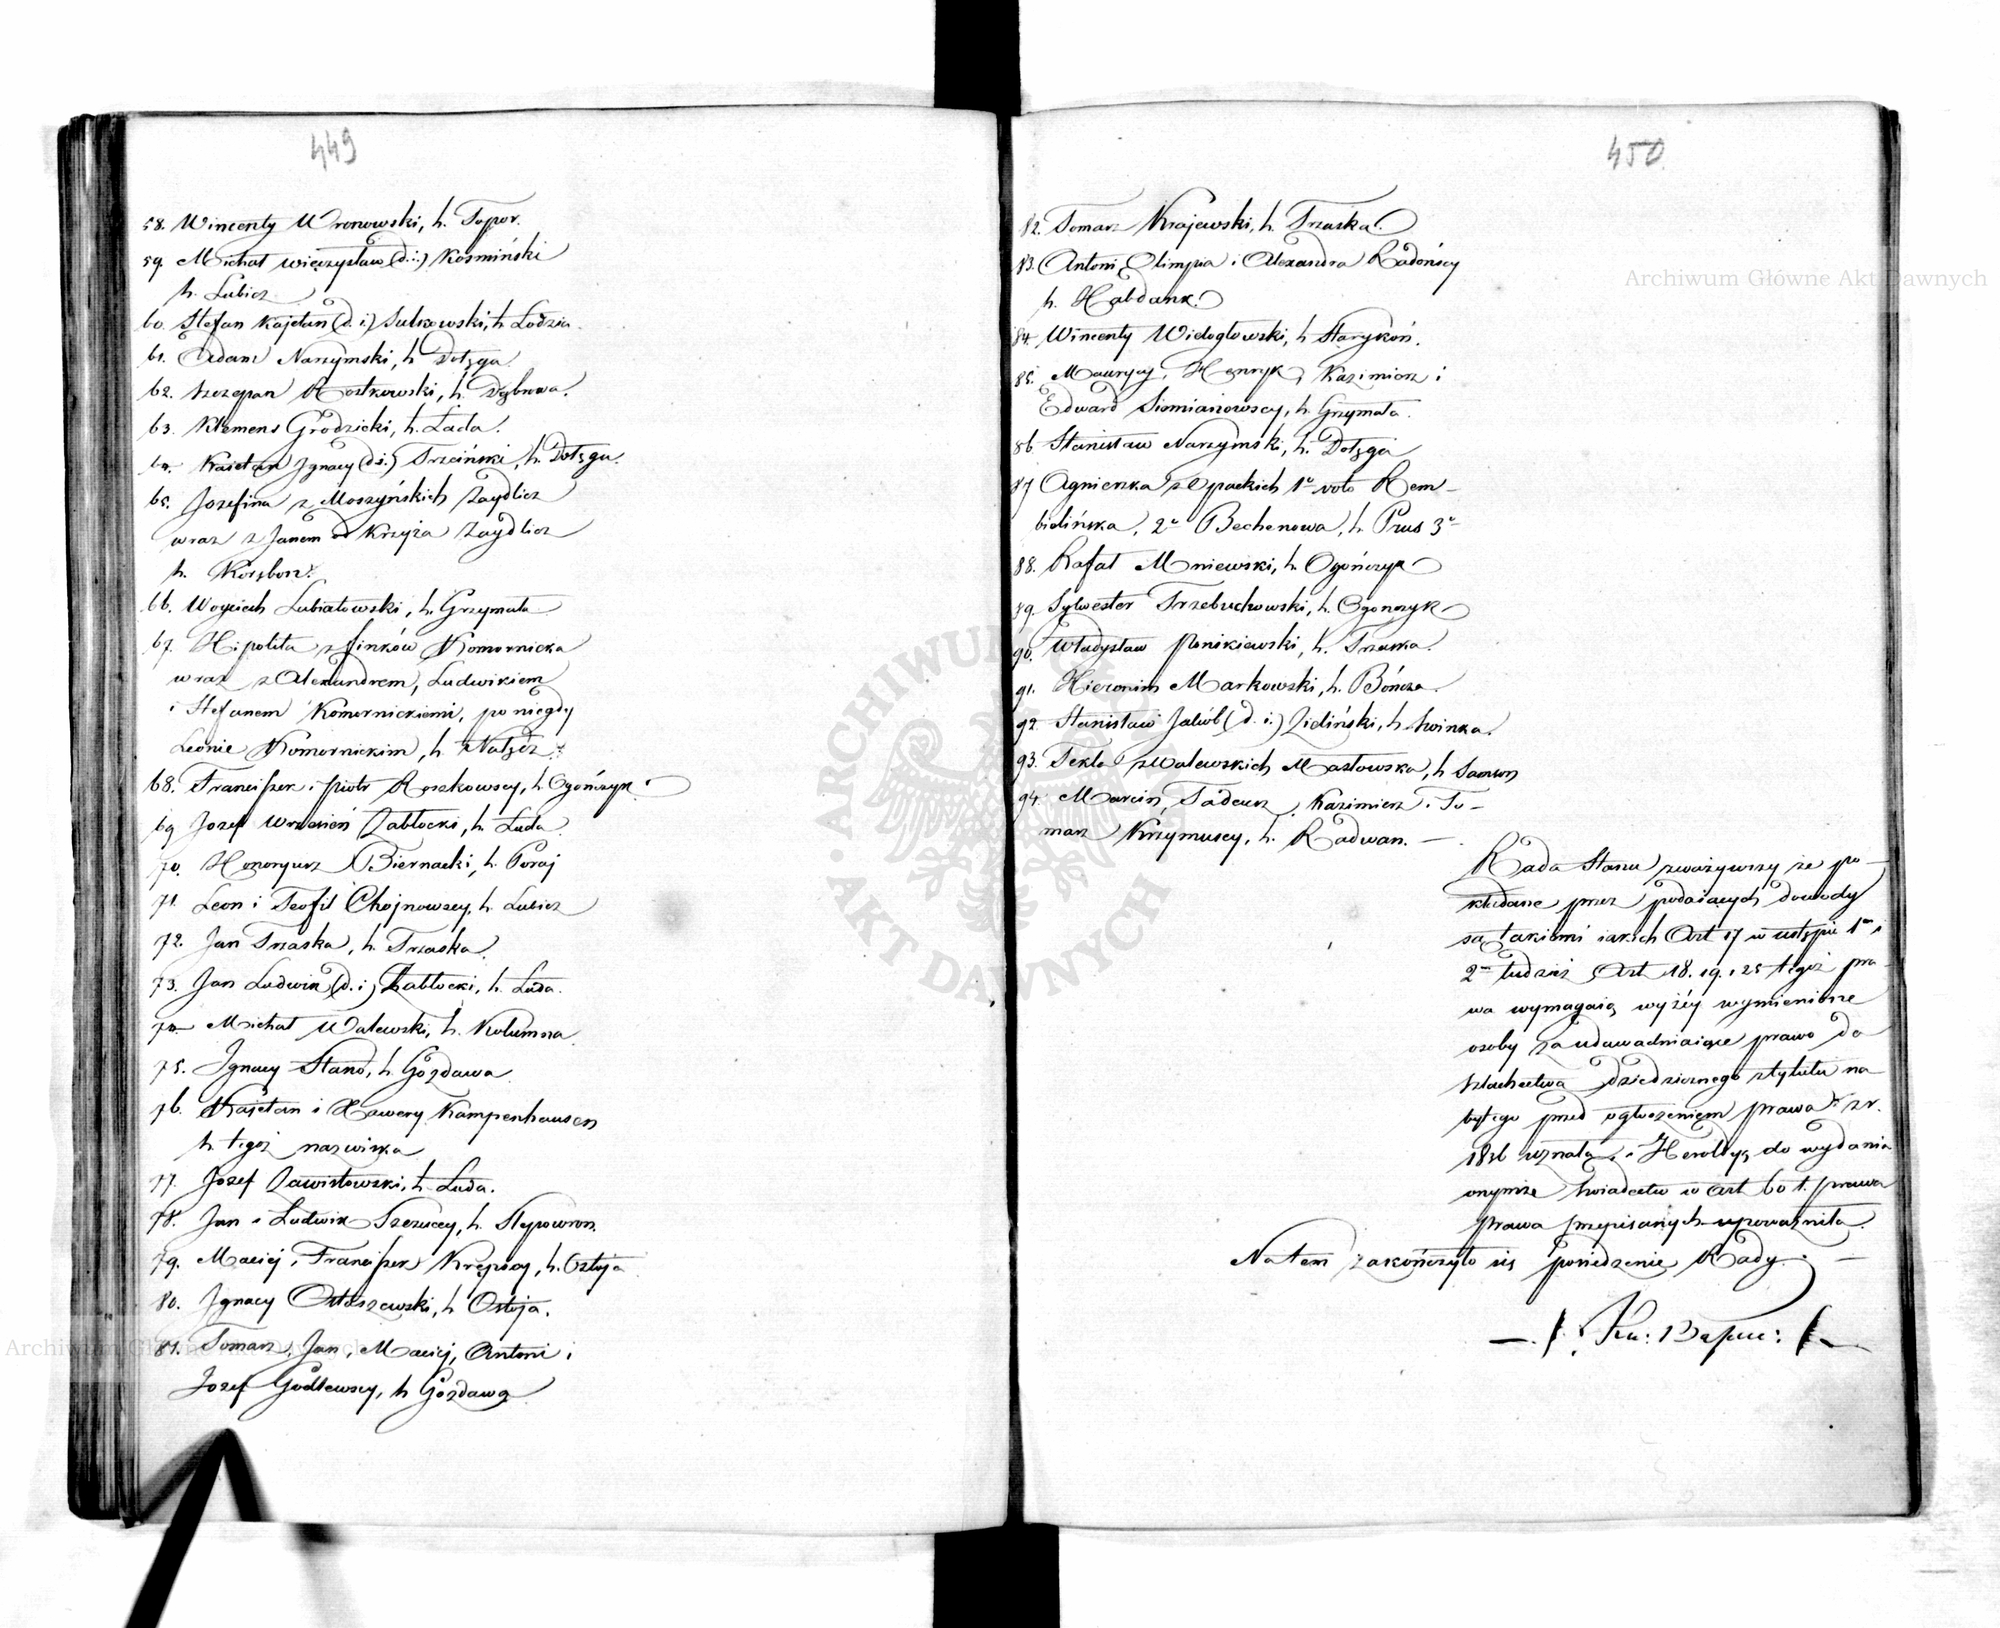 449
58. Wincenty Wronowski, h. Topor.
59. Michał Mieczysław (d. i.) Kosmiński
h. Lubicz
60. Stefan Kajetan (d. i.) Sulkowski, h. Łodzia.
61. Adam Narzymski, h Dołęga
62. Szczepan Rostkowski, h. Dąbrowa.
63. Klemens Grodzicki, h. Łada.
64. Kajetan Ignacy (d. i.) Trzciński, h. Dołęga.
65. Jozefina z Moszyńskich Zaydlicz
wraz z Janem od Krzyża Zaydlicz
h. Korzbok.
66. Woyciech Lubiatowski, h. Grzymała
67. Hipolita z Finków Komornicka
wraz z Alexandrem, Ludwikiem
i Stefanem Komornickiemi, po niegdy
Leonie Komornickim, h. Nałęcz.
68. Franciszek i Piotr Roszkowscy, h Ogończyk.
69 Jozef Wrzesień Zabłocki, h. Łada
70. Honoryusz Biernacki, h. Poraj
71. Leon i Teofil Chojnowscy, h. Lubicz
72. Jan Trzaska, h. Trzaska
73. Jan Ludwik (d. i.) Zabłocki, h. Łada.
74 Michał Walewski, h. Kolumna
75. Ignacy Stand, h. Gozdawa
76. Kajetan i Xawery Kampenhausen
h. tegoż nazwiska
77. Jozef Zawistowski, h. Łada.
78. Jan i Ludwik Szczuccy, h. Slepowron.
79. Maciej, Franciszek Krępscy, h. Ostoja
80. Ignacy Ostaszewski, h Ostoja.
81. Tomasz, Jan, Maciej, Antoni i
Jozef Godlewscy, h Gozdawa
450
82. Tomasz Krajewski, h. Trzaska.
83. Antoni, Olimpia i Alexandra Radońscy
h. Habdank.
84. Wincenty Wielogłowski, h Starykoń.
85. Maurycy, Henryk, Kazimierz i
Edward Siemianowscy, h. Grzymała.
86 Stanisław Narzymski, h. Dołęga
87 Agnieszka z Opackich 1o voto Rem-
bielińska, 2o Bechonowa, h. Prus 3o
88. Rafał Mniewski, h. Ogończyk
89. Sylwester Trzebuchowski, h. Ogończyk
90. Władysław Ponikiewski, h. Trzaska.
91. Hieronim Markowski, h. Bończa.
92. Stanisław Jakób (d. i.) Zieliński, h. Swinka.
93. Tekla z Walewskich Masłowska, h Samson
94. Marcin, Tadeusz, Kazimierz i To-
masz Krzymuscy, h. Radwan. —
Rada Stanu zważywszy że po-
kładane przez podaiących dowody
są takiemi iakich Art 17 w ustępie 1m i
2m tudzież Art 18. 19. i 25 tegoż pra-
wa wymagaią wyżéy wymienione
osoby za udawadniaiące prawo do
Szlachectwa dziedzicznego z tytułu na-
bytego przed ogłoszeniem prawa z r.
1836 uznała, i Heroldyą do wydania
onymże Swiadectw w Art 60 t. prawa
prawa przepisanych upoważniła.
Na tem zakończyło się posiedzenie Rady. —
Archiwum Główne Akt Dawnych
Archiwum Główne Akt Dawnych
ARCHIWUM GŁÓWNE AKT DAWNYCH